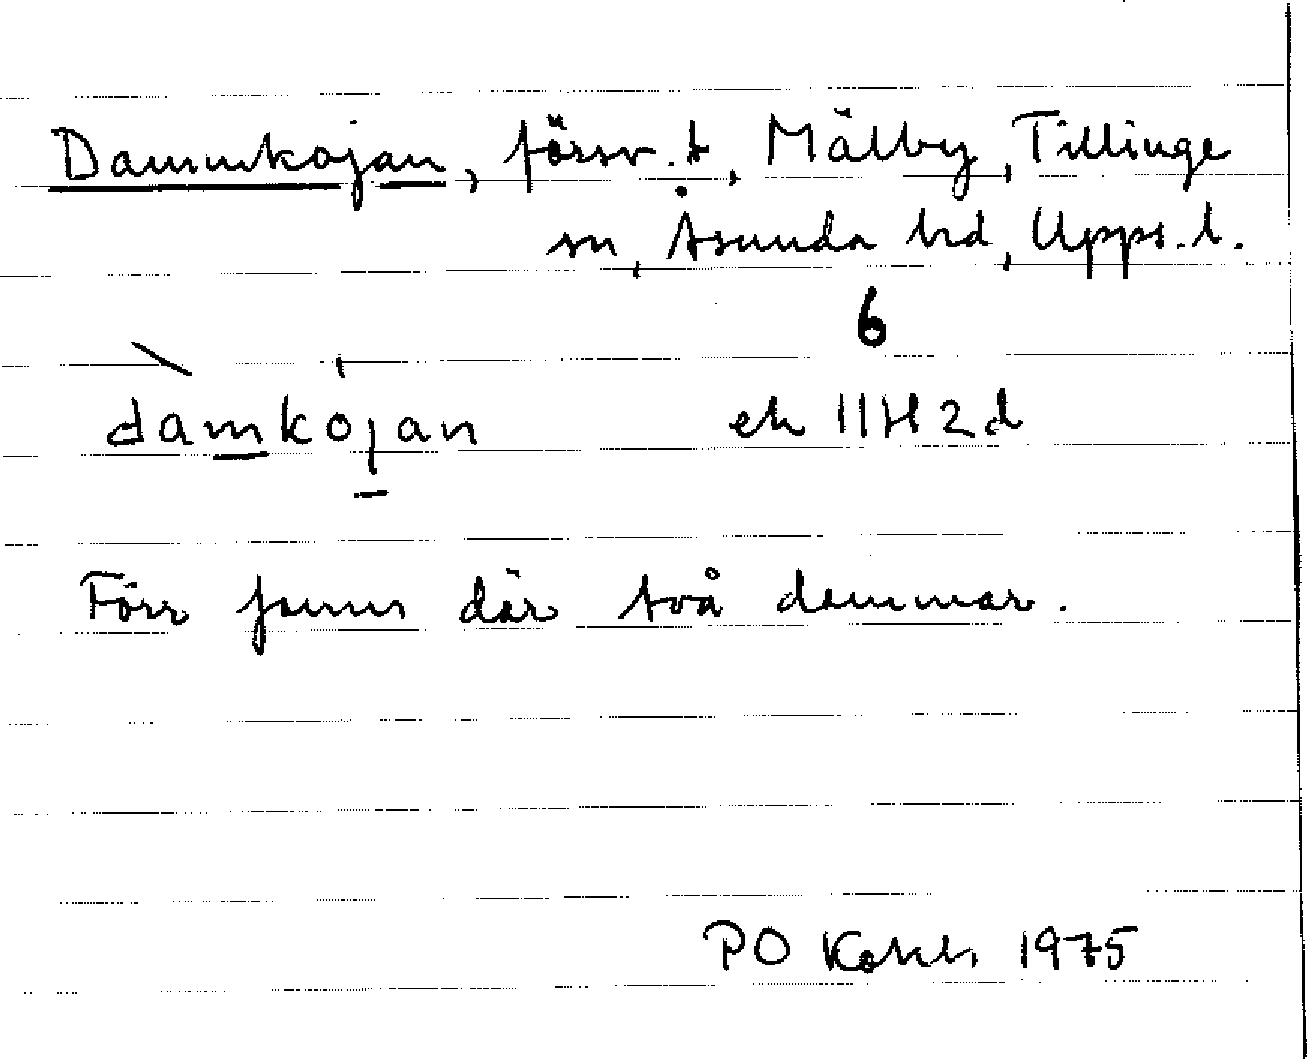 Dammkojan, försv. t, Mälby, Tillinge
sn, Åsunda hd, Upps. l.
6
damkojan ek 11H2d
Förr fanns där två dammar.
PO 1975